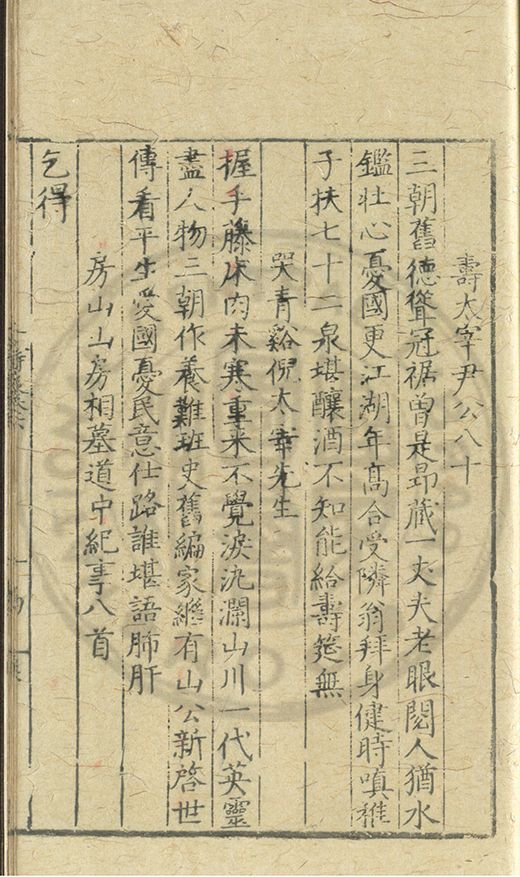 壽太宰尹公八十
三朝舊德聳冠裾曾是昂藏一丈夫老眼閱人猶水
鑑壯心憂國更江湖年高合受隣翁拜身健時嗔稚
子扶七十二泉堪釀酒不知能給壽筵無
哭青谿倪太宰先生
握手滕床肉未寒重来不覺淚汍瀾山川一代英靈
盡人物三朝作養難班史舊編家繼有山公新啓世
傳看平生愛國憂民意仕路誰堪語肺肝
房山山房相墓道中紀事八首
乞得